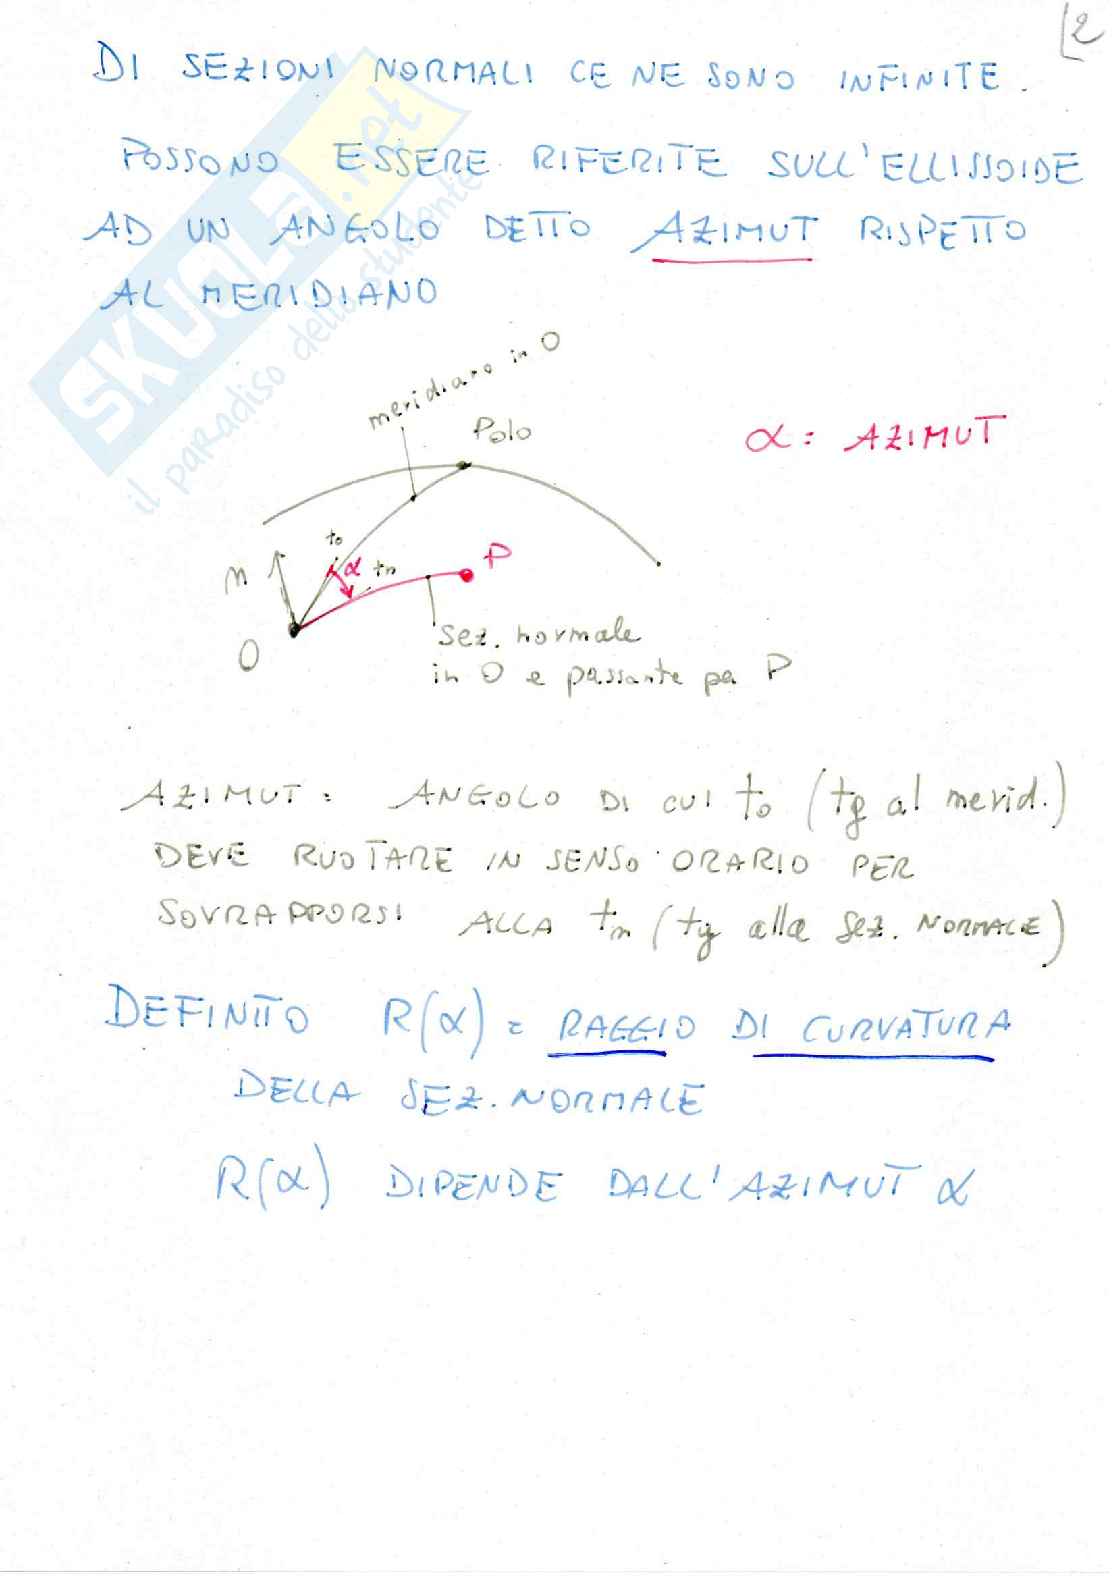 2
DI SEZIONI NORMALI CE NE SONO INFINITE.
POSSONO ESSERE RIFERITE SULL'ELLISSOIDE
AD UN ANGOLO DETTO AZIMUT RISPETTO
AL MERIDIANO
SKUOLA.net
il paradiso dello studente
meridiano in O
Polo
α = AZIMUT
t₀
α
tₙ
P
n
O
sez. normale
in O e passante per P
AZIMUT = ANGOLO DI CUI t₀ (tg al merid.)
DEVE RUOTARE IN SENSO ORARIO PER
SOVRAPPORSI ALLA tₙ (tg alla sez. NORMALE)
DEFINITO R(α) = RAGGIO DI CURVATURA
DELLA SEZ. NORMALE
R(α) DIPENDE DALL'AZIMUT α